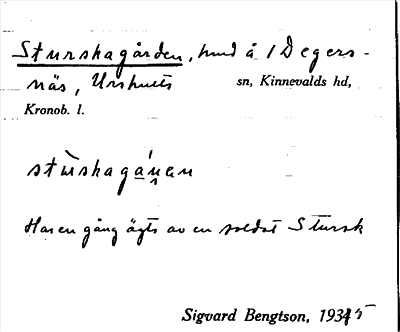 Sturskagården, hmd å 1 Degers-
näs, Urshults sn, Kinnevalds hd,
Kronob. l.
stùskagánan
Har en gång ägts av en soldat Stursk
Sigvard Bengtson, 1935